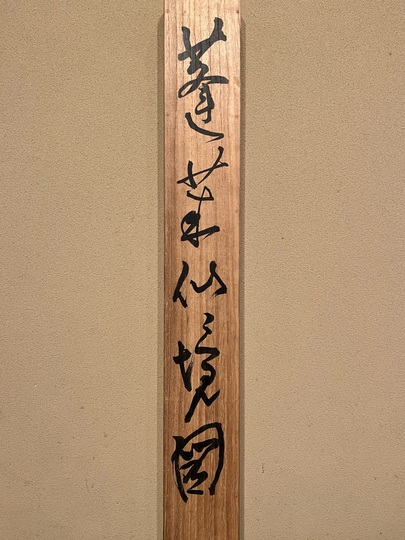 蓬莱仙境図